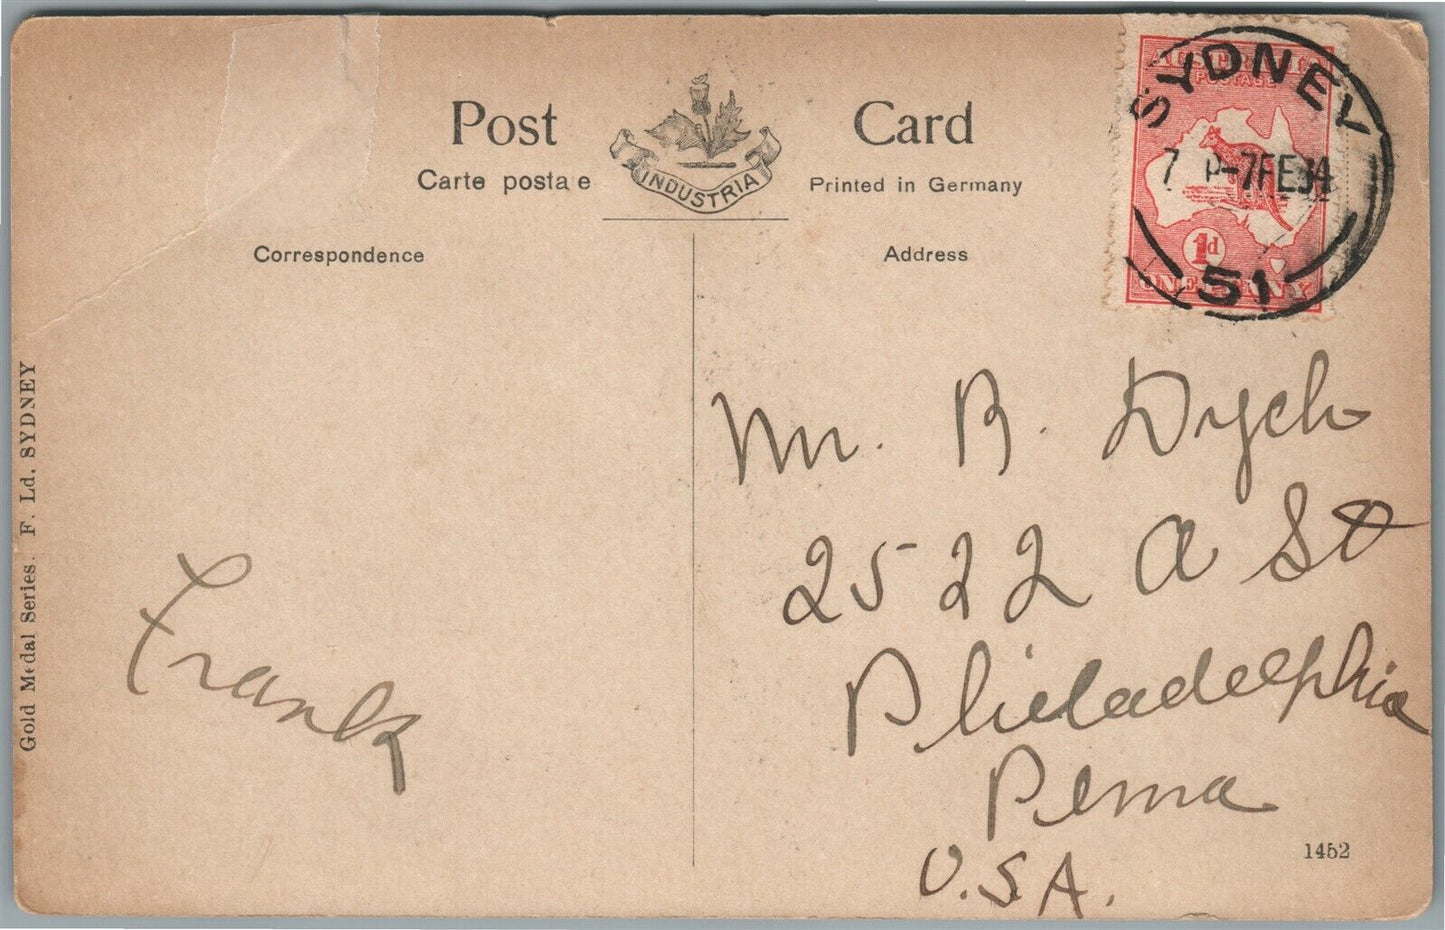 Post Card
Carte posta e
Printed in Germany
INDUSTRIA
Correspondence
Address
AUSTRALIA
POSTAGE
1d
ONE PENNY
SYDNEY
7 P-7FE14
51
Gold Medal Series. F. Ld. SYDNEY
Frank
Mr. B. Dych
2522 A St
Philadelphia
Penna
U.S.A.
1452